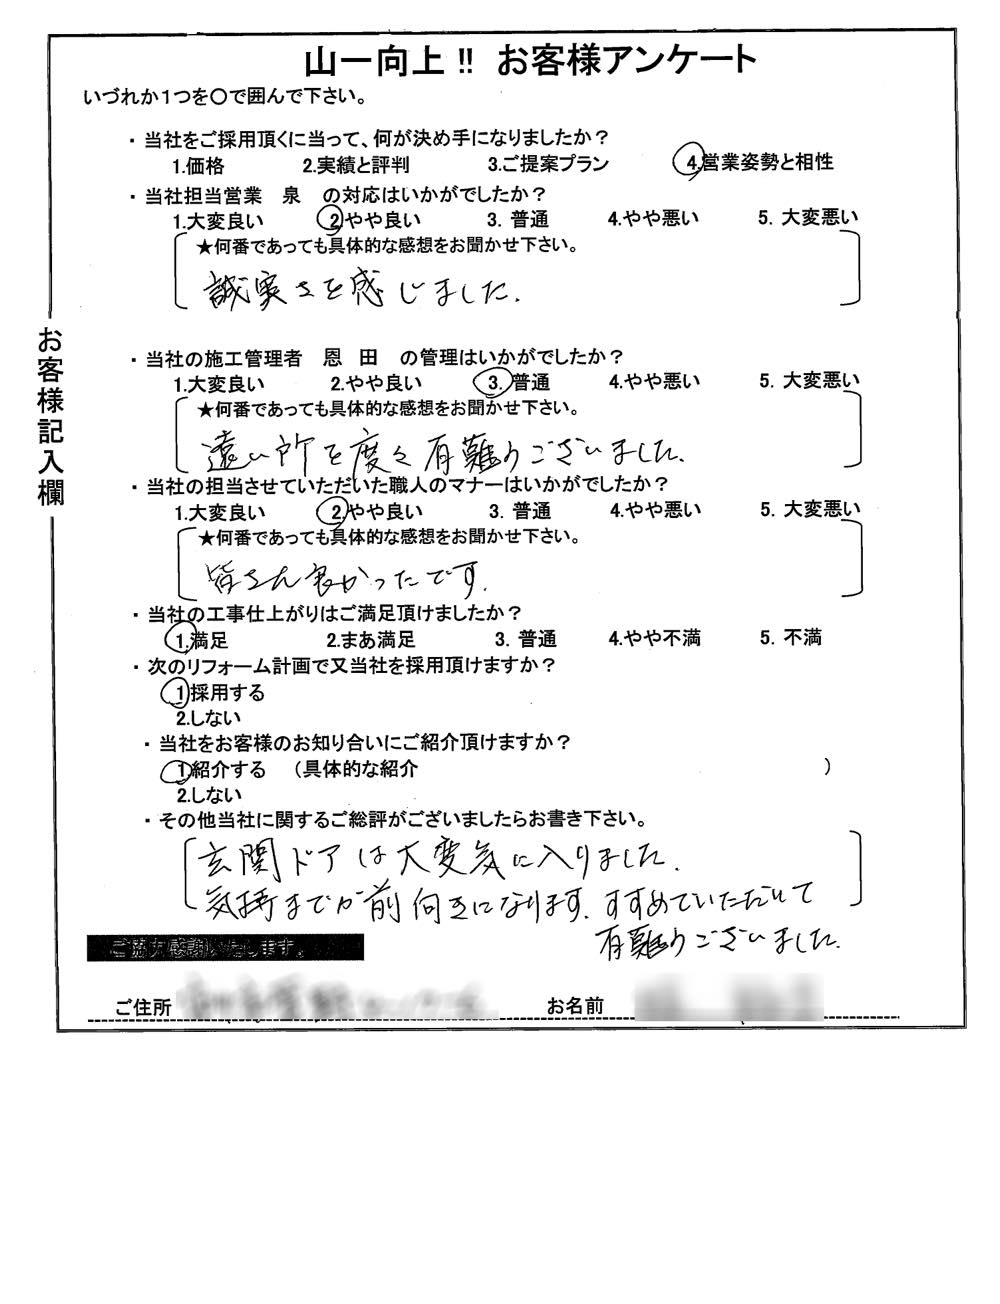 山一向上!! お客様アンケート
いづれか1つを〇で囲んで下さい。
・当社をご採用頂くに当って、何が決め手になりましたか？
1.価格 2.実績と評判 3.ご提案プラン 4.営業姿勢と相性
・当社担当営業 泉 の対応はいかがでしたか？
1.大変良い 2.やや良い 3. 普通 4.やや悪い 5. 大変悪い
★何番であっても具体的な感想をお聞かせ下さい。
誠実さを感じました.
・当社の施工管理者 恩 田 の管理はいかがでしたか？
1.大変良い 2.やや良い 3. 普通 4.やや悪い 5. 大変悪い
★何番であっても具体的な感想をお聞かせ下さい。
遠い所を度々有難うございました.
・当社の担当させていただいた職人のマナーはいかがでしたか？
1.大変良い 2.やや良い 3. 普通 4.やや悪い 5. 大変悪い
★何番であっても具体的な感想をお聞かせ下さい。
皆さん良かったです.
・当社の工事仕上がりはご満足頂けましたか？
1.満足 2.まあ満足 3. 普通 4.やや不満 5. 不満
・次のリフォーム計画で又当社を採用頂けますか？
1採用する
2.しない
・当社をお客様のお知り合いにご紹介頂けますか？
1紹介する （具体的な紹介 ）
2.しない
・その他当社に関するご総評がございましたらお書き下さい。
玄関ドアは大変気に入りました.
気持までが前向きになります. すすめていただいて
有難うございました.
ご協力感謝いたします。
ご住所 お名前
お客様記入欄